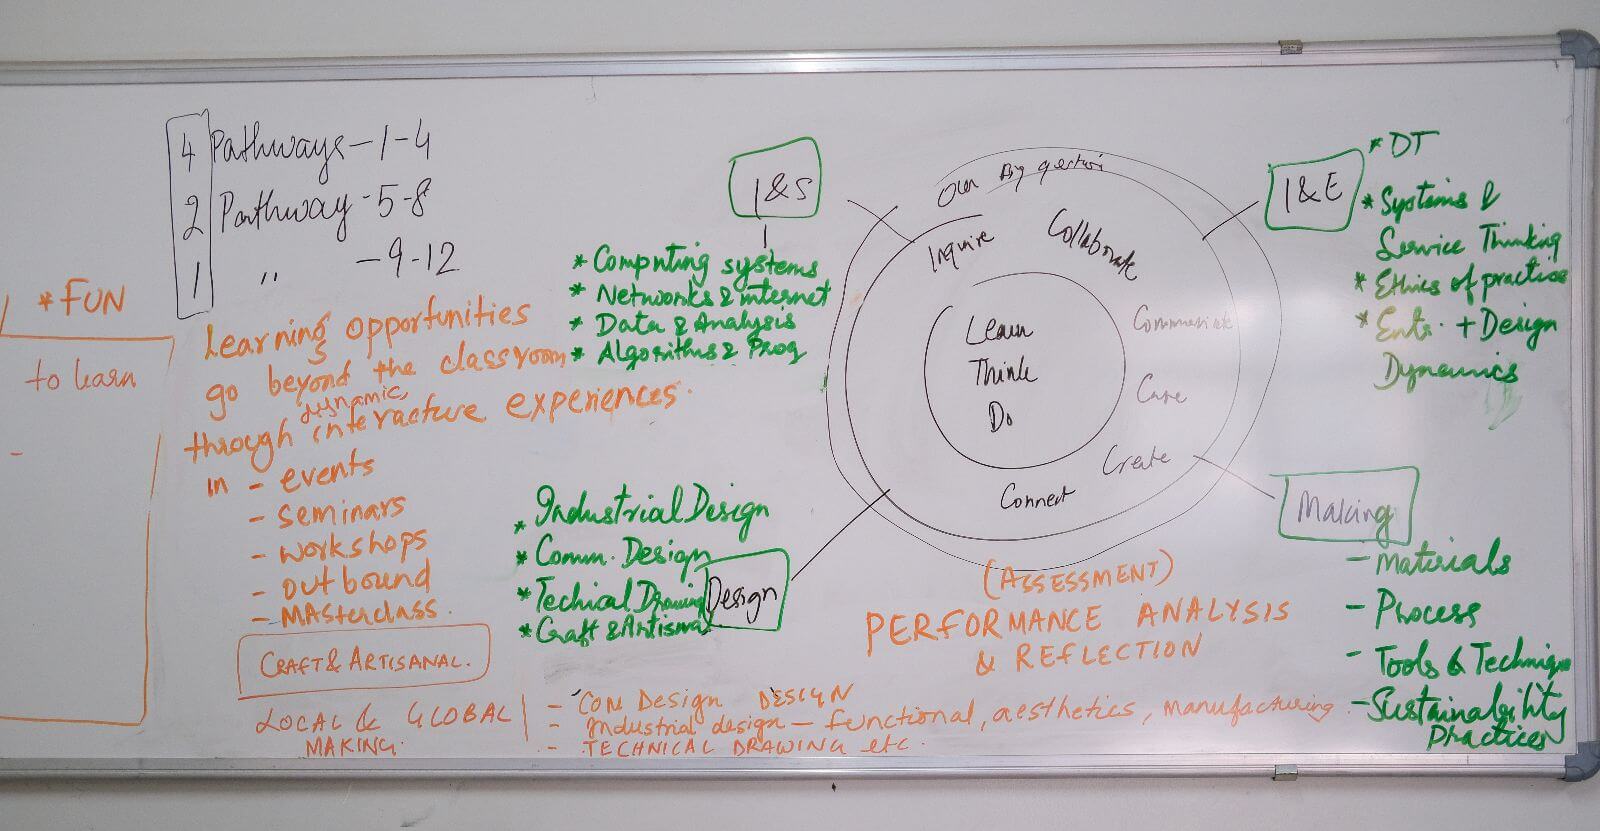 4 Pathways - 1-4
2 Pathway - 5-8
1 " - 9-12
* FUN
to learn
Learning opportunities
go beyond the classroom
dynamic
through interactive experiences.
in - events
- seminars
- workshops
- outbound
- MASterclass.
CRAFT & ARTISANAL.
LOCAL & GLOBAL
MAKING.
- COM DESIGN DESIGN
- Industrial design - functional, aesthetics, manufacturing.
- TECHNICAL DRAWING etc.
I&S
* Computing systems
* Networks & internet
* Data & Analysis
* Algorithms & Prog
* Industrial Design
* Comm. Design
* Techical Drawing
* Craft & Artisana
Design
Our Big
Inquire
Collaborate
Care
Create
Connect
Learn
Think
Do
(ASSESSMENT)
PERFORMANCE ANALYSIS
& REFLECTION
I&E
* DT
* Systems &
Service Thinking
* Ethics of practice
* Entr. + Design
Dynamics
Making
- Materials
- Process
- Tools & Techniqu
- Sustainability
Practices